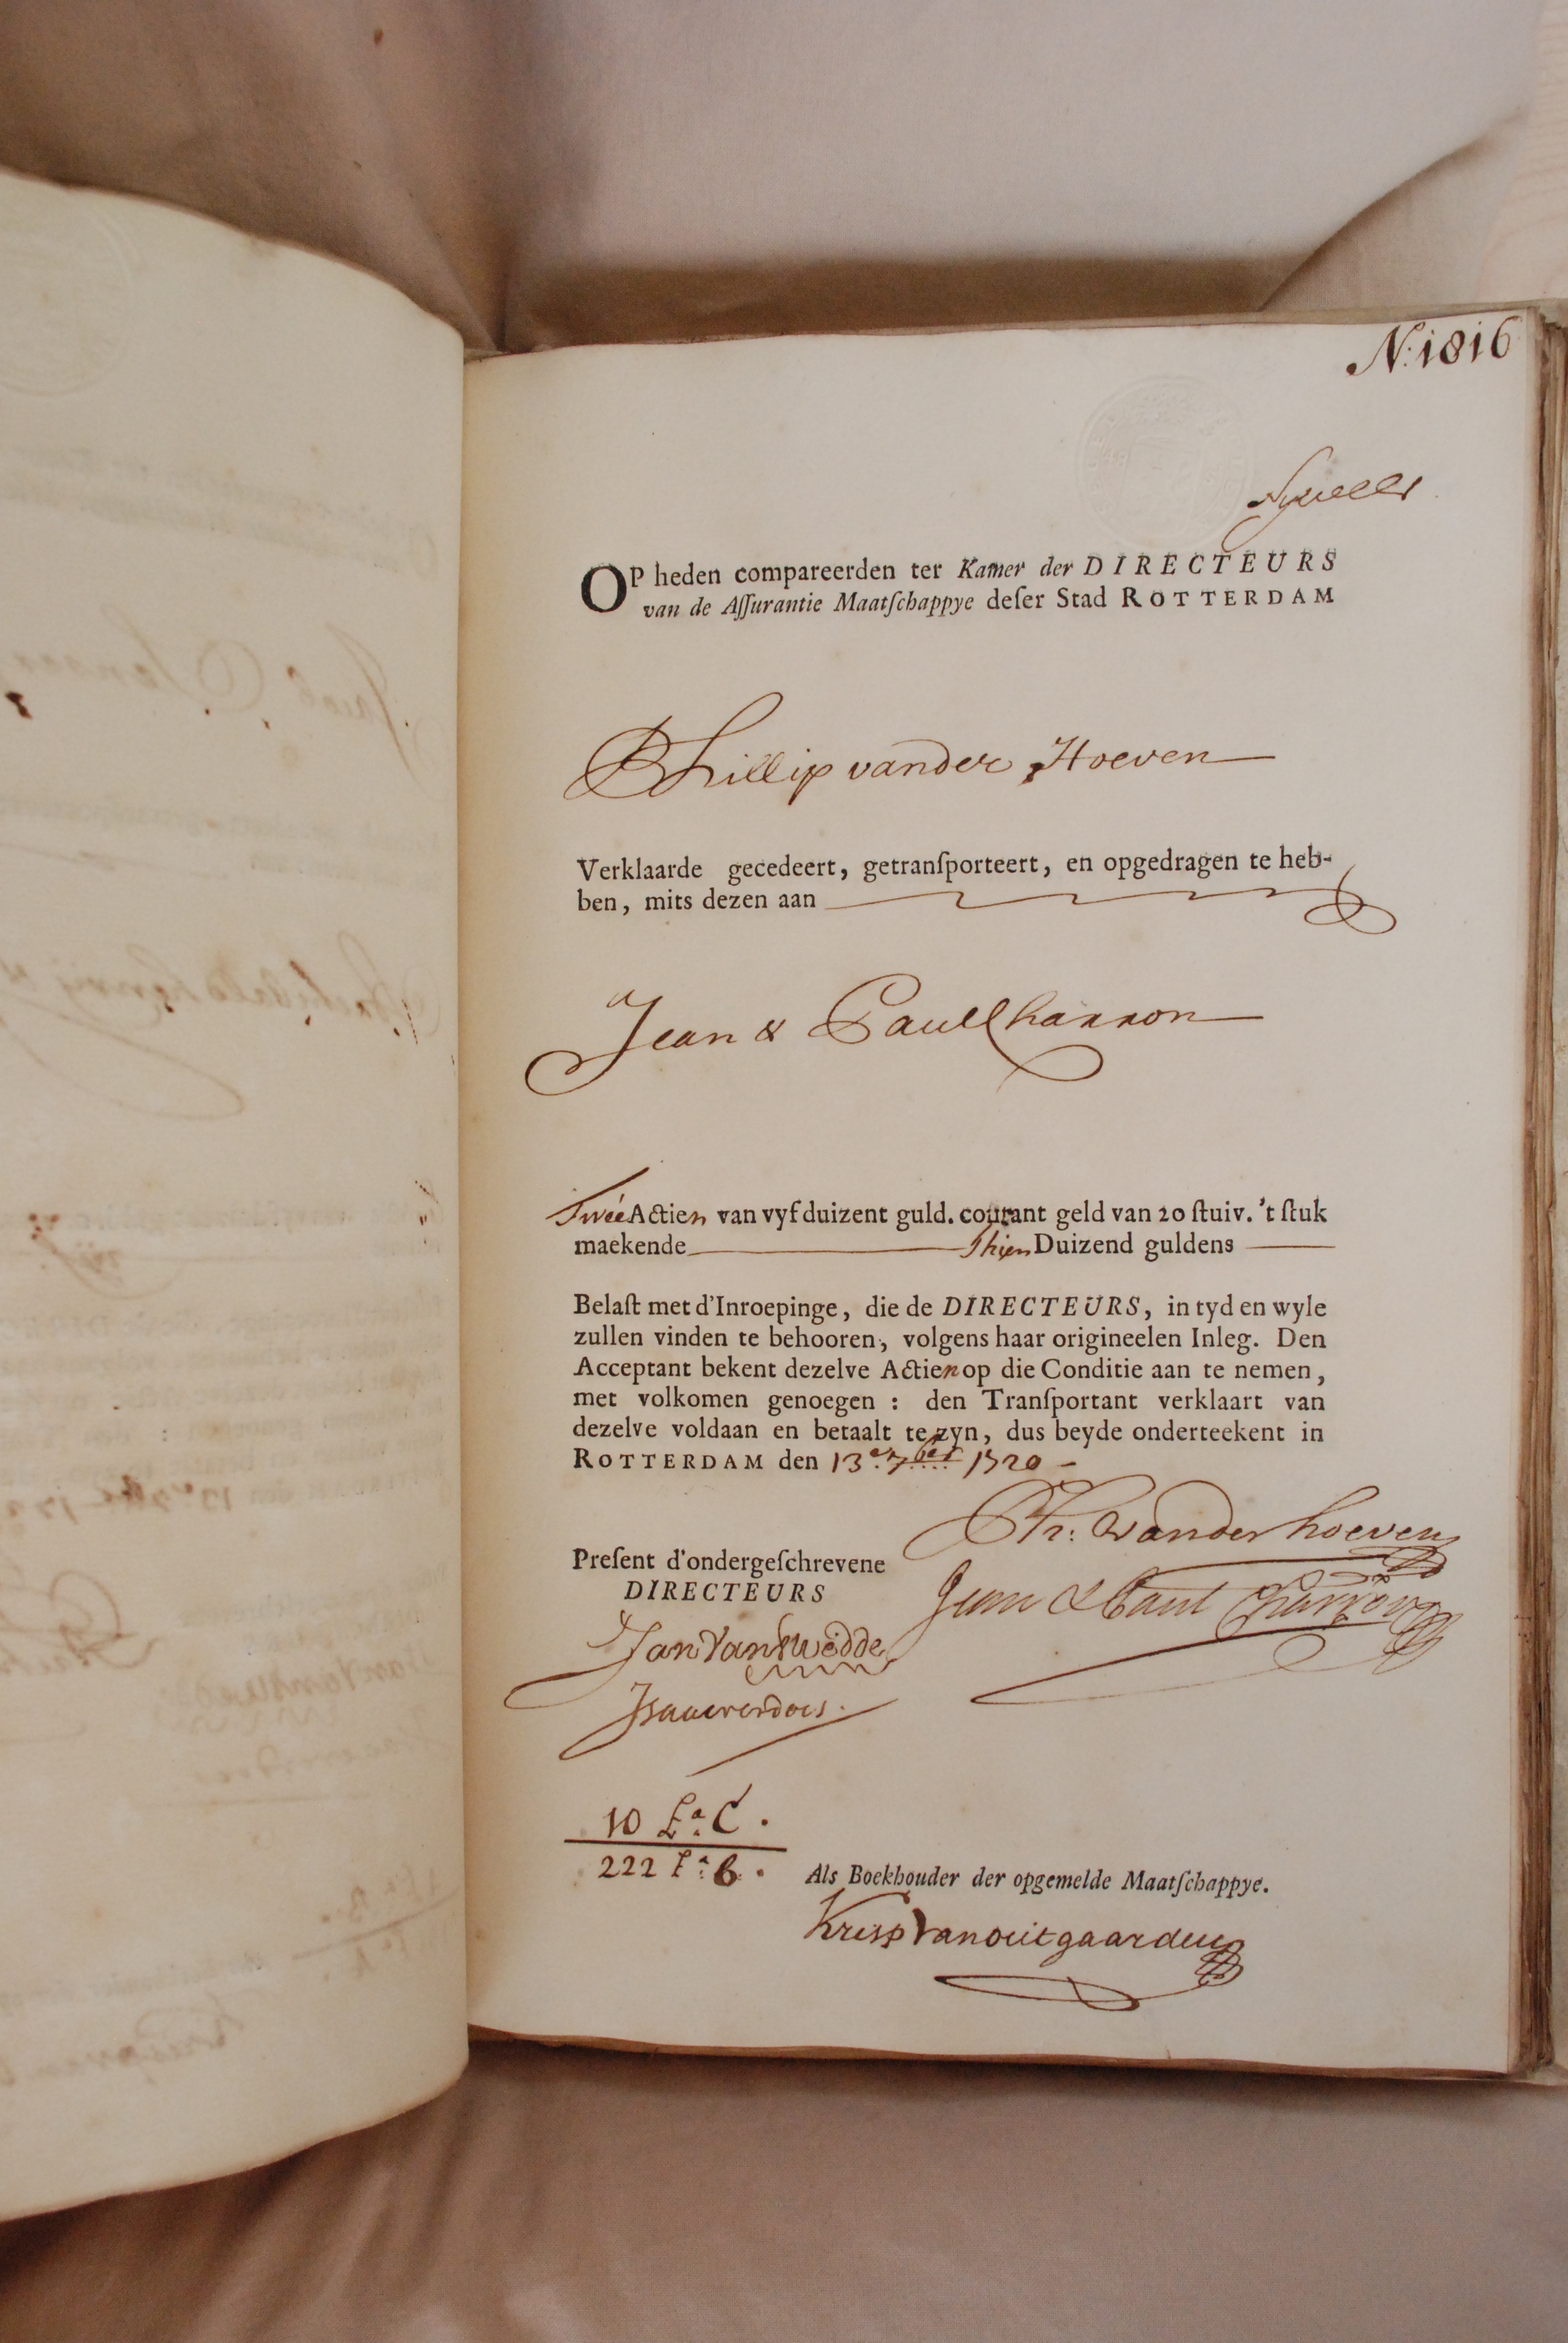 N:1816
OP heden compareerden ter Kamer der DIRECTEURS
van de Aſſurantie Maatſchappye deſer Stad ROTTERDAM
Phillip vander Hoeven
Verklaarde gecedeert, getranſporteert, en opgedragen te heb-
ben, mits dezen aan
Jean & Paul Charron
Twée Actien van vyf duizent guld. courant geld van 20 ſtuiv. 't ſtuk
maekende Thien Duizend guldens
Belaſt met d'Inroepinge, die de DIRECTEURS, in tyd en wyle
zullen vinden te behooren, volgens haar origineelen Inleg. Den
Acceptant bekent dezelve Actien op die Conditie aan te nemen,
met volkomen genoegen : den Tranſportant verklaart van
dezelve voldaan en betaalt te zyn, dus beyde onderteekent in
ROTTERDAM den 13en 7ber 1720
Ph: vander hoeven
Preſent d'ondergeſchrevene
DIRECTEURS
Jean & Paul Charron
Jan Van Twedde
Isaac verdoes.
10 La C.
222 La B.
Als Boekhouder der opgemelde Maatſchappye.
Krisp Van outgaarden